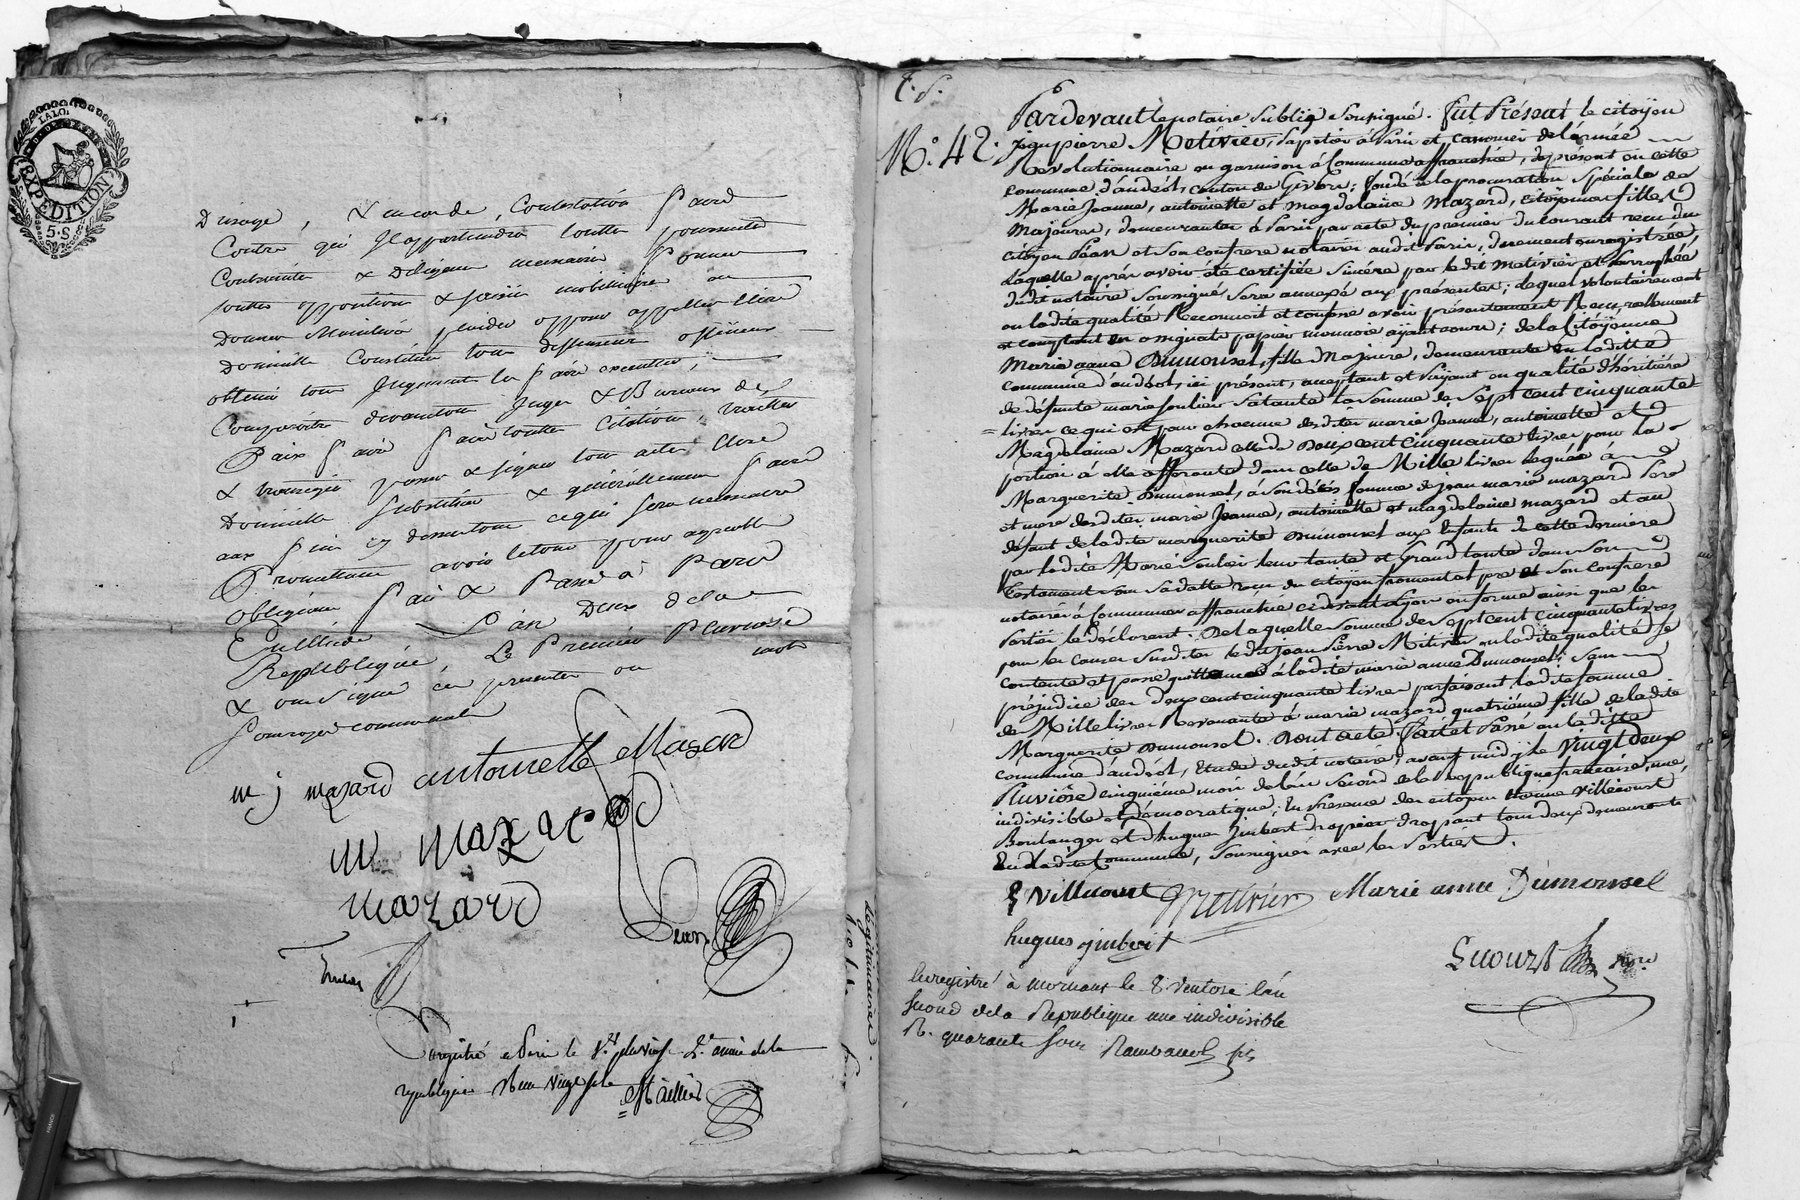 LA LOI
EXPEDITION
5.S
D'usage, & en cas de, Contestation faire
Contre qui Il appartiendra toutte poursuitte
Contrainte & Diligence necessaire former
touttes oppositions & saisie mobiliaire en
Donner Mainlevée plaider opposer appeller Elire
Domicille Constituer tous deffenseurs officieux
obtenir tous Jugements les faire executer,
Comparoître devant tous Juges & Bureaux de
Paix y faire faire touttes Citations, traitter
& transiger passer & signer tous actes Elire
Domicille Substituer & généralement faire
aux fins cy dessus tout ce qui sera necessaire
Promettant avoir le tout pour agréable
obligeant fait & Passé à Paris
En l'Etude L'an Deux de la
République, Le Premier Pluviose
& ont signé ces presentes ou
pouvoir
m j mazard antoinette Mazard
m mazard
mazard
Pean
Enregistré a Paris le pluviose 2e année de la
republique Reçu vingt sols
légitimaires
T. S.
N.o 42.
Pardevant le notaire Public soussigné. fut Présent le citoÿen
jean pierre Metivier, Papetier à Paris et canonier de l'armée
Revolutionnaire en garnison à Commune affranchie, de présent en cette
commune d'andéol, canton de Givors; fondé de la procuration spéciale de
Marie Jeanne, antoinette et magdelaine Mazard, citoÿennes filles
Majeures, demeurantes à Paris par acte du premier du courant recu du
citoyen Péan et son confrere notaires audit Paris, duement enregistrée,
Laquelle après avoir été certifiée sincére par ledit Metivier et parraphée
dudit notaire soussigné sera annexé aux présentes; lequel volontairement
en ladite qualité Reconnoit et confesse avoir présentement Reçu, réellement
et comptant en assignats papier monnoie aÿant cours; de la Citoÿenne
Marie anne Dumoursel, fille Majeure, demeurante en la ditte
commune d'andéol, ici présent, acceptant et Paÿant en qualité d'héritiére
de défunte marie soulier sa tante la somme de Sept cent cinquante
livres ce qui est pour chacune desdites marie jeanne, antoinette et
Magdelaine Mazard celle de Deux cent cinquante livres pour la
portion à elle afferante dans celle de Mille livres leguée à
Marguerite Dumoursel, à son décès femme de jean marie mazard pere
et mere desdites marie Jeanne, antoinette et magdelaine mazard et au
défaut de ladite marguerite Dumoursel aux Enfants de cette derniére
par ladite Marie Soulier leur tante et grand tante dans son
testament sous sa datte reçu du citoyen fromental pre et son confrere
notaires à Commune affranchie ci devant Lyon en forme ainsi que les
Parties le déclarent. De laquelle somme de sept cent cinquante livres
pour les causes susdites ledit Jean Pierre Metivier en ladite qualité se
contente et passe quittance à ladite marie anne Dumoursel; sans
préjudice des deux cent cinquante livres parfaisant ladite somme
de Mille livres Revenante à marie mazard quatriéme fille de ladite
Marguerite Dumoursel. Dont acte. fait et Passé en la ditte
commune d'andéol, Etude dudit notaire, avant midy le vingt Deux
Pluviôse cinquième mois de l'an second de la république française, une,
indivisible et démocratique; En Presence des citoyens Etienne Villecourt
Boulanger et hugues Jimbert drapier drapant tous deux demeurants
En Ladite Commune, soussignés avec les Parties.
E Villecourt Metivier Marie anne Dumoursel
hugues jimbert
Enregistré à mornant le 8 ventose l'an
second de la Republique une indivisible
R. quarante sous